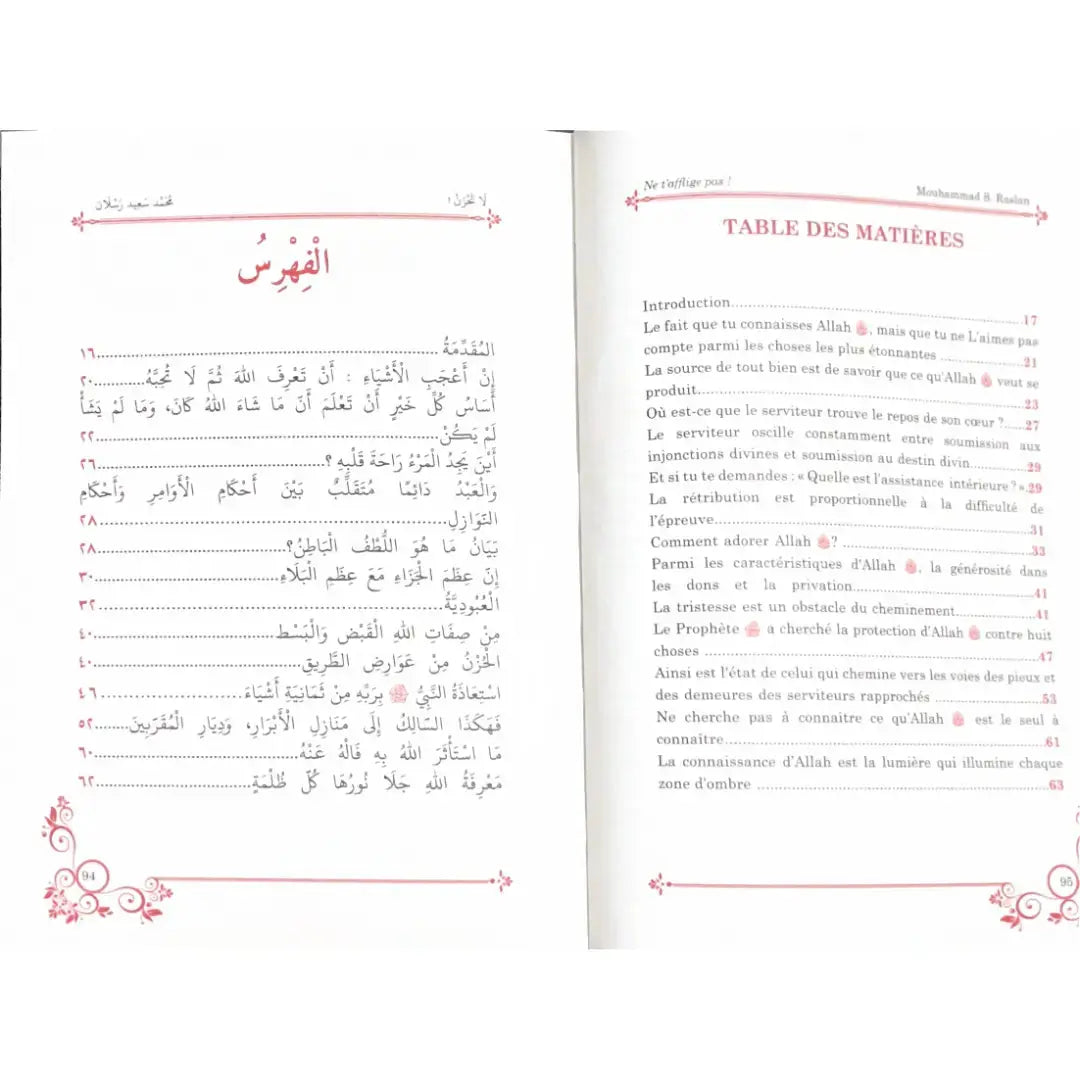 لَا تَحْزَنْ !
مُحَمَّد سَعِيد رَسْلَان
الْفِهْرِسُ
المُقَدِّمَةُ ................................ ١٦
إِنَّ أَعْجَبِ الْأَشْيَاءِ : أَنْ تَعْرِفَ اللهَ ثُمَّ لَا تُحِبَّهُ............٢٠
أَسَاسُ كُلِّ خَيْرٍ أَنْ تَعْلَمَ أَنَّ مَا شَاءَ اللهُ كَانَ، وَمَا لَمْ يَشَأْ
لَمْ يَكُنْ................................٢٢
أَيْنَ يَجِدُ الْمَرْءُ رَاحَةَ قَلْبِهِ ؟................................٢٦
وَالْعَبْدُ دَائِمًا مُتَقَلِّبٌ بَيْنَ أَحْكَامِ الْأَوَامِرِ وَأَحْكَامِ
النَّوَازِلِ................................٢٨
بَيَانُ مَا هُوَ اللُّطْفُ الْبَاطِنُ؟................................٢٨
إِنَّ عِظَمَ الْجَزَاءِ مَعَ عِظَمِ الْبَلَاءِ................................٣٠
الْعُبُودِيَّةُ................................٣٢
مِنْ صِفَاتِ اللهِ الْقَبْضُ وَالْبَسْط................................٤٠
الْحُزْنُ مِنْ عَوَارِضِ الطَّرِيقِ................................٤٠
اسْتِعَاذَةُ النَّبِيِّ ﷺ بِرَبِّهِ مِنْ ثَمَانِيَةِ أَشْيَاءَ................٤٦
فَهَكَذَا السَّالِكُ إِلَى مَنَازِلِ الْأَبْرَارِ، وَدِيَارِ الْمُقَرَّبِينَ........٥٢
مَا اسْتَأْثَرَ اللهُ بِهِ فَالْهُ عَنْهُ................................٦٠
مَعْرِفَةُ اللهِ جَلَا نُورُهَا كُلَّ ظُلْمَةٍ................................٦٢
94
Ne t'afflige pas !
Mouhammad S. Raslan
TABLE DES MATIÈRES
Introduction................................17
Le fait que tu connaisses Allah, mais que tu ne L'aimes pas
compte parmi les choses les plus étonnantes ................21
La source de tout bien est de savoir que ce qu'Allah veut se
produit................................23
Où est-ce que le serviteur trouve le repos de son cœur ?......27
Le serviteur oscille constamment entre soumission aux
injonctions divines et soumission au destin divin............29
Et si tu te demandes : « Quelle est l'assistance intérieure ? ».29
La rétribution est proportionnelle à la difficulté de
l'épreuve................................31
Comment adorer Allah ? ................................33
Parmi les caractéristiques d'Allah, la générosité dans
les dons et la privation................................41
La tristesse est un obstacle du cheminement................41
Le Prophète ﷺ a cherché la protection d'Allah contre huit
choses ................................47
Ainsi est l'état de celui qui chemine vers les voies des pieux et
des demeures des serviteurs rapprochés ................53
Ne cherche pas à connaitre ce qu'Allah est le seul à
connaître................................61
La connaissance d'Allah est la lumière qui illumine chaque
zone d'ombre ................................63
95